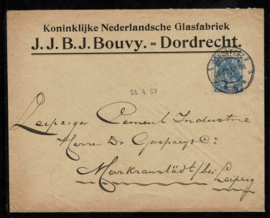 Koninklijke Nederlandsche Glasfabriek
J. J. B. J. Bouvy. - Dordrecht.
Leipziger Cement Industrie
Herrn Dr Gaspary & C°
Markranstädt / bei Leipzig